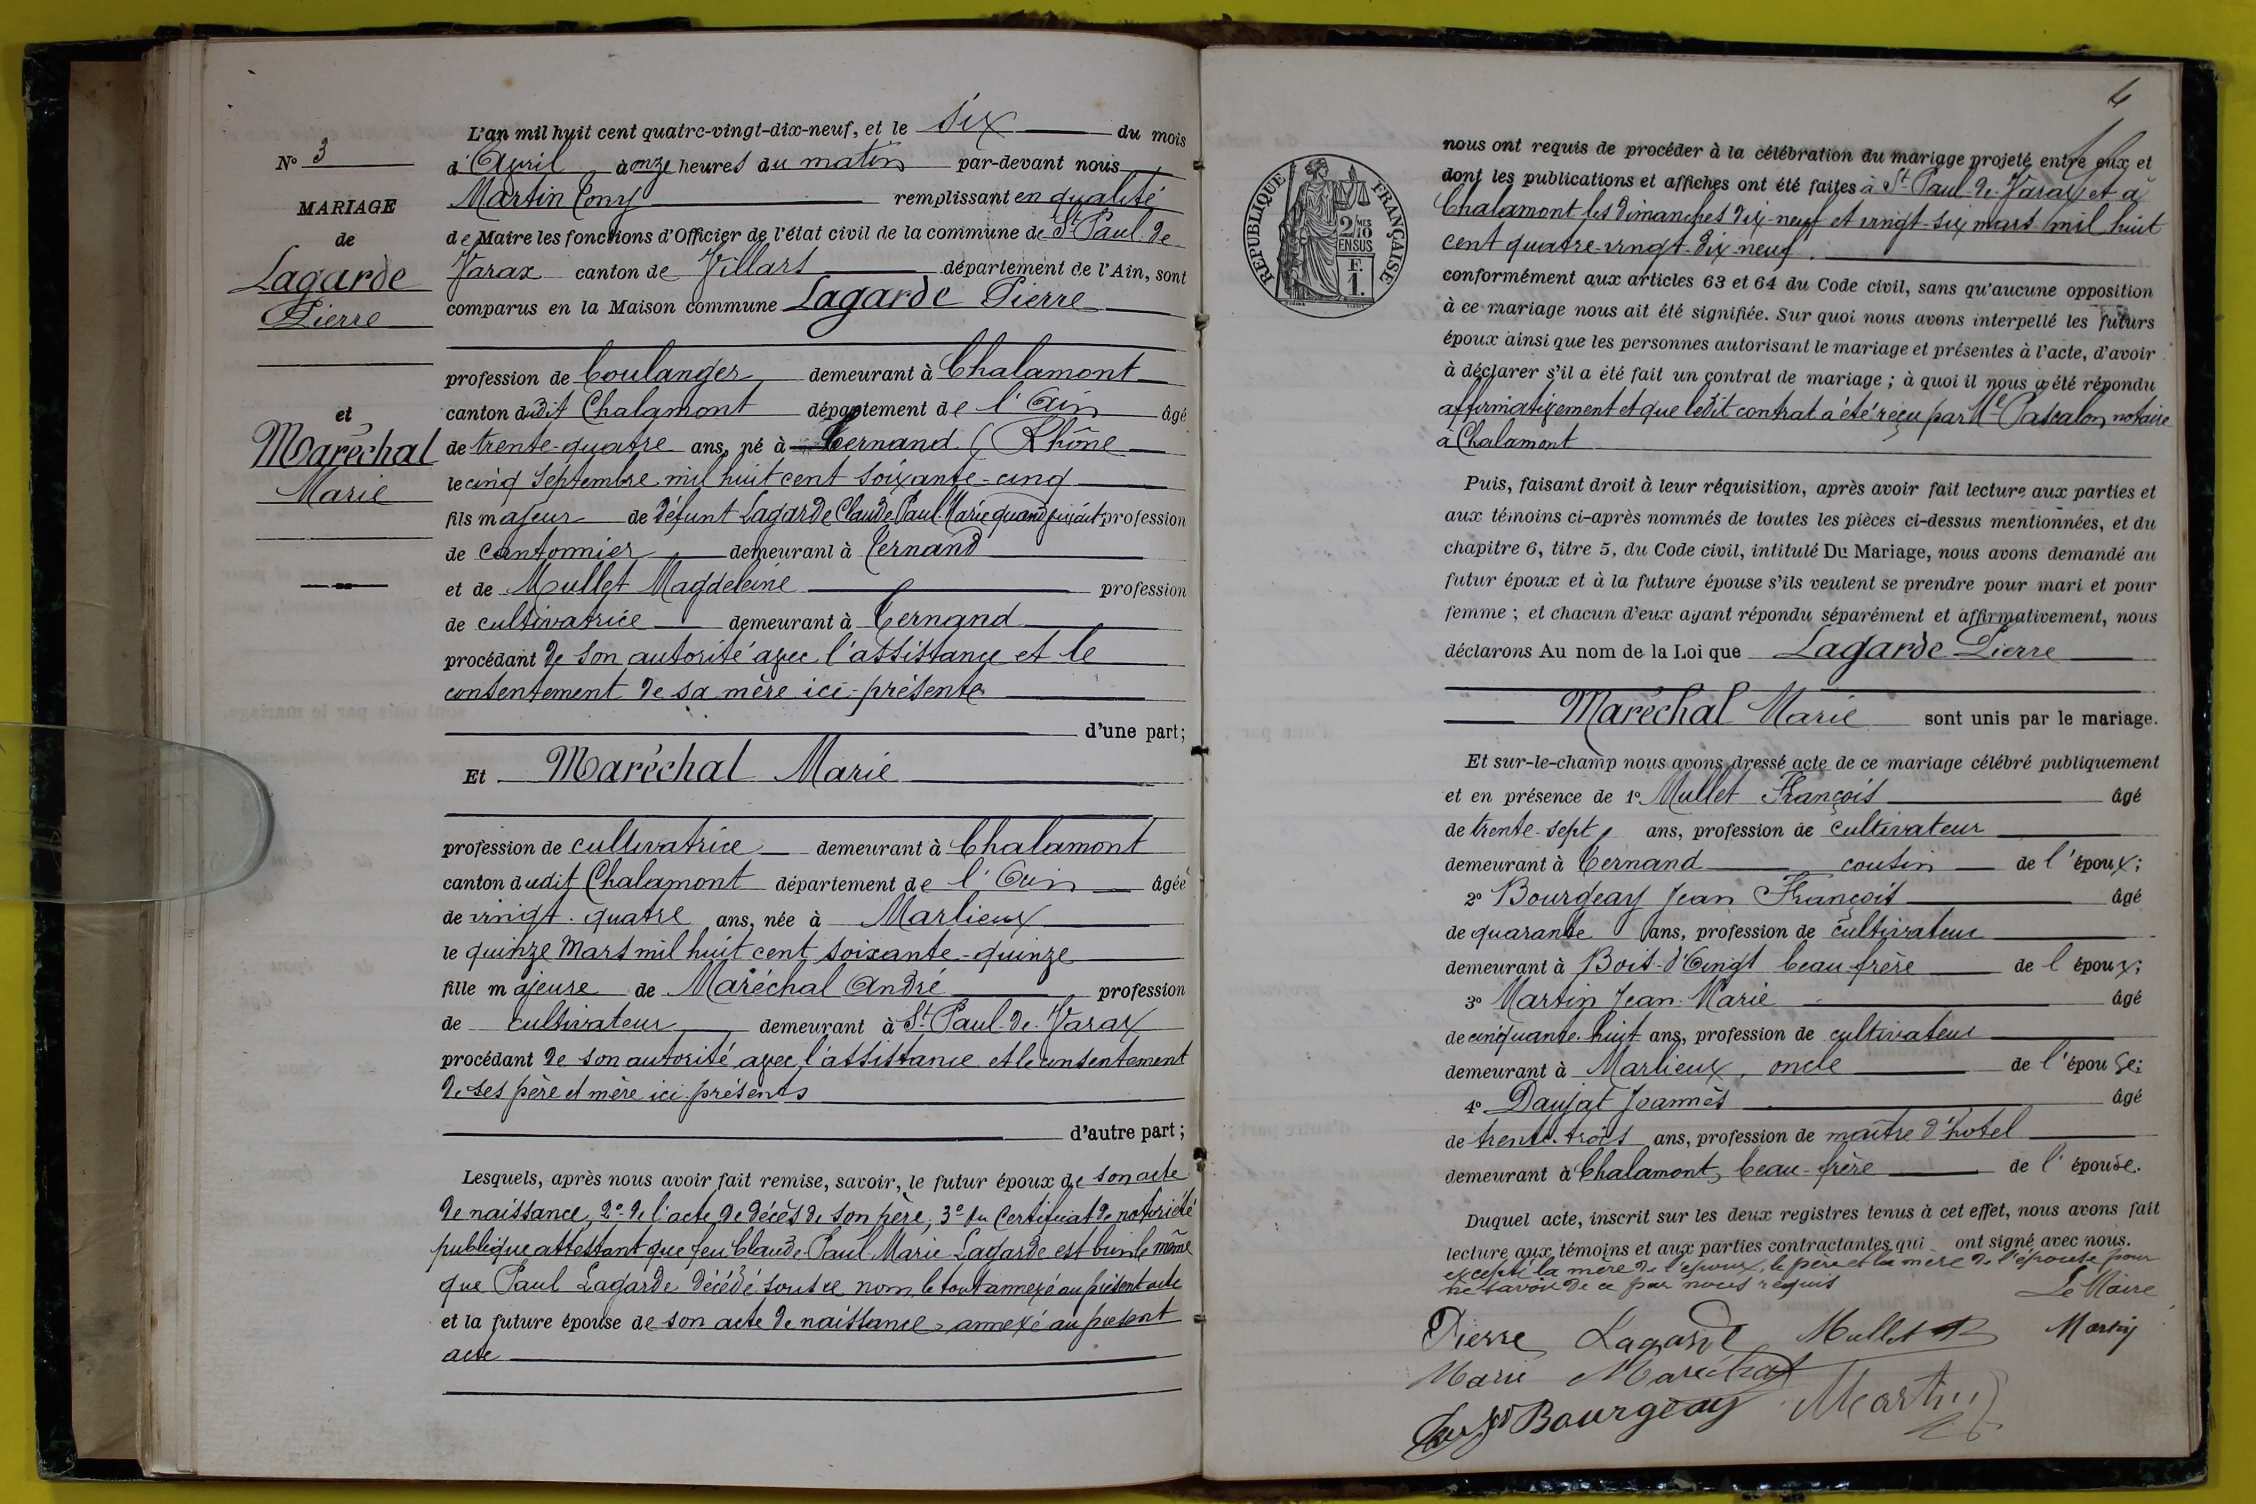 N° 3
MARIAGE
de
Lagarde
Pierre
et
Maréchal
Marie
L'an mil huit cent quatre-vingt-dix-neuf, et le six du mois
d'Avril à onze heures du matin par-devant nous
Martin Cony remplissant en qualité
de Maire les fonctions d'Officier de l'état civil de la commune de St Paul-de-
Varax canton de Villars département de l'Ain, sont
comparus en la Maison commune Lagarde Pierre
profession de boulanger demeurant à Chalamont
canton dudit Chalamont département de l'Ain âgé
de trente-quatre ans, né à Ternand (Rhône
le cinq septembre mil huit cent soixante-cinq
fils majeur de défunt Lagarde Claude Paul Marie quand vivait profession
de cantonnier demeurant à Ternand
et de Mullet Magdeleine profession
de cultivatrice demeurant à Ternand
procédant de son autorité avec l'assistance et le
consentement de sa mère ici-présente
d'une part;
Et Maréchal Marie
profession de cultivatrice demeurant à Chalamont
canton dudit Chalamont département de l'Ain âgée
de vingt-quatre ans, née à Marlieux
le quinze Mars mil huit cent soixante-quinze
fille majeure de Maréchal André profession
de cultivateur demeurant à St Paul-de-Varax
procédant de son autorité avec l'assistance et le consentement
de ses père et mère ici présents
d'autre part;
Lesquels, après nous avoir fait remise, savoir, le futur époux de son acte
de naissance, 2° de l'acte de décès de son père, 3° du certificat de notoriété
publique attestant que feu Claude Paul Marie Lagarde est bien le même
que Paul Lagarde décédé sous ce nom, le tout annexé au présent acte
et la future épouse de son acte de naissance annexé au présent
acte
4
RÉPUBLIQUE FRANÇAISE
2/10 MES
EN SUS
F.
1.
nous ont requis de procéder à la célébration du mariage projeté entre eux et
dont les publications et affiches ont été faites à St-Paul-de-Varax et à
Chalamont les dimanches dix-neuf et vingt-six mars mil huit
cent quatre-vingt-dix-neuf.
conformément aux articles 63 et 64 du Code civil, sans qu'aucune opposition
à ce mariage nous ait été signifiée. Sur quoi nous avons interpellé les futurs
époux ainsi que les personnes autorisant le mariage et présentes à l'acte, d'avoir
à déclarer s'il a été fait un contrat de mariage ; à quoi il nous a été répondu
affirmativement et que ledit contrat a été reçu par Me Pascalon, notaire
à Chalamont
Puis, faisant droit à leur réquisition, après avoir fait lecture aux parties et
aux témoins ci-après nommés de toutes les pièces ci-dessus mentionnées, et du
chapitre 6, titre 5, du Code civil, intitulé Du Mariage, nous avons demandé au
futur époux et à la future épouse s'ils veulent se prendre pour mari et pour
femme ; et chacun d'eux ayant répondu séparément et affirmativement, nous
déclarons Au nom de la Loi que Lagarde Pierre
Maréchal Marie sont unis par le mariage.
Et sur-le-champ nous avons dressé acte de ce mariage célébré publiquement
et en présence de 1° Mullet François âgé
de trente-sept ans, profession de cultivateur
demeurant à Ternand cousin de l'époux;
2° Bourgeay Jean François âgé
de quarante ans, profession de cultivateur
demeurant à Bois-d'Oingt beau-frère de l'époux;
3° Martin Jean-Marie âgé
de cinquante-huit ans, profession de cultivateur
demeurant à Marlieux, oncle de l'épouse;
4° Daujat Joannès âgé
de trente-trois ans, profession de maître d'hotel
demeurant à Chalamont, beau-frère de l'épouse.
Duquel acte, inscrit sur les deux registres tenus à cet effet, nous avons fait
lecture aux témoins et aux parties contractantes qui ont signé avec nous.
excepté la mère de l'époux, le père et la mère de l'épouse pour
ne savoir de ce par nous requis
Le Maire
Pierre Lagarde Mullet Martin
Marie Maréchal
Bourgeay Martin